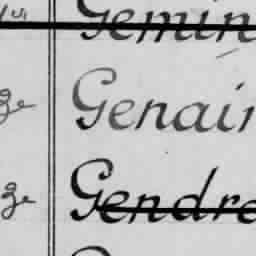 Gemin
ge Genair
ge Gendre